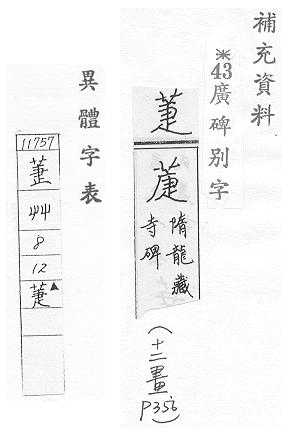 補充資料
※43廣碑別字
萐
隋龍藏
寺碑
(十二畫
P356)
異體字表
11757
艸
8
12
萐▲